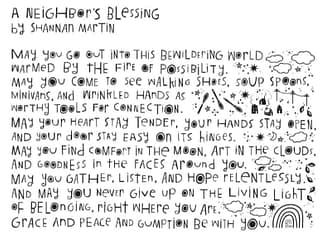 A NEIGHBOR'S BLESSING
by SHANNAN MARTIN
MAY YOU GO OUT INTO THIS BEWILDERING WORLD
WARMED BY THE FIRE OF POSSIBILITY.
MAY YOU COME TO SEE WALKING SHOES, SOUP SPOONS,
MINIVANS, AND WRINKLED HANDS AS
WORTHY TOOLS FOR CONNECTION.
MAY YOUR HEART STAY TENDER, YOUR HANDS STAY OPEN,
AND YOUR DOOR STAY EASY ON ITS HINGES.
MAY YOU FIND COMFORT IN THE MOON, ART IN THE CLOUDS,
AND GOODNESS IN THE FACES AROUND YOU.
MAY YOU GATHER, LISTEN, AND HOPE RELENTLESSLY.
AND MAY YOU NEVER GIVE UP ON THE LIVING LIGHT
OF BELONGING, RIGHT WHERE YOU ARE.
GRACE AND PEACE AND GUMPTION BE WITH YOU.